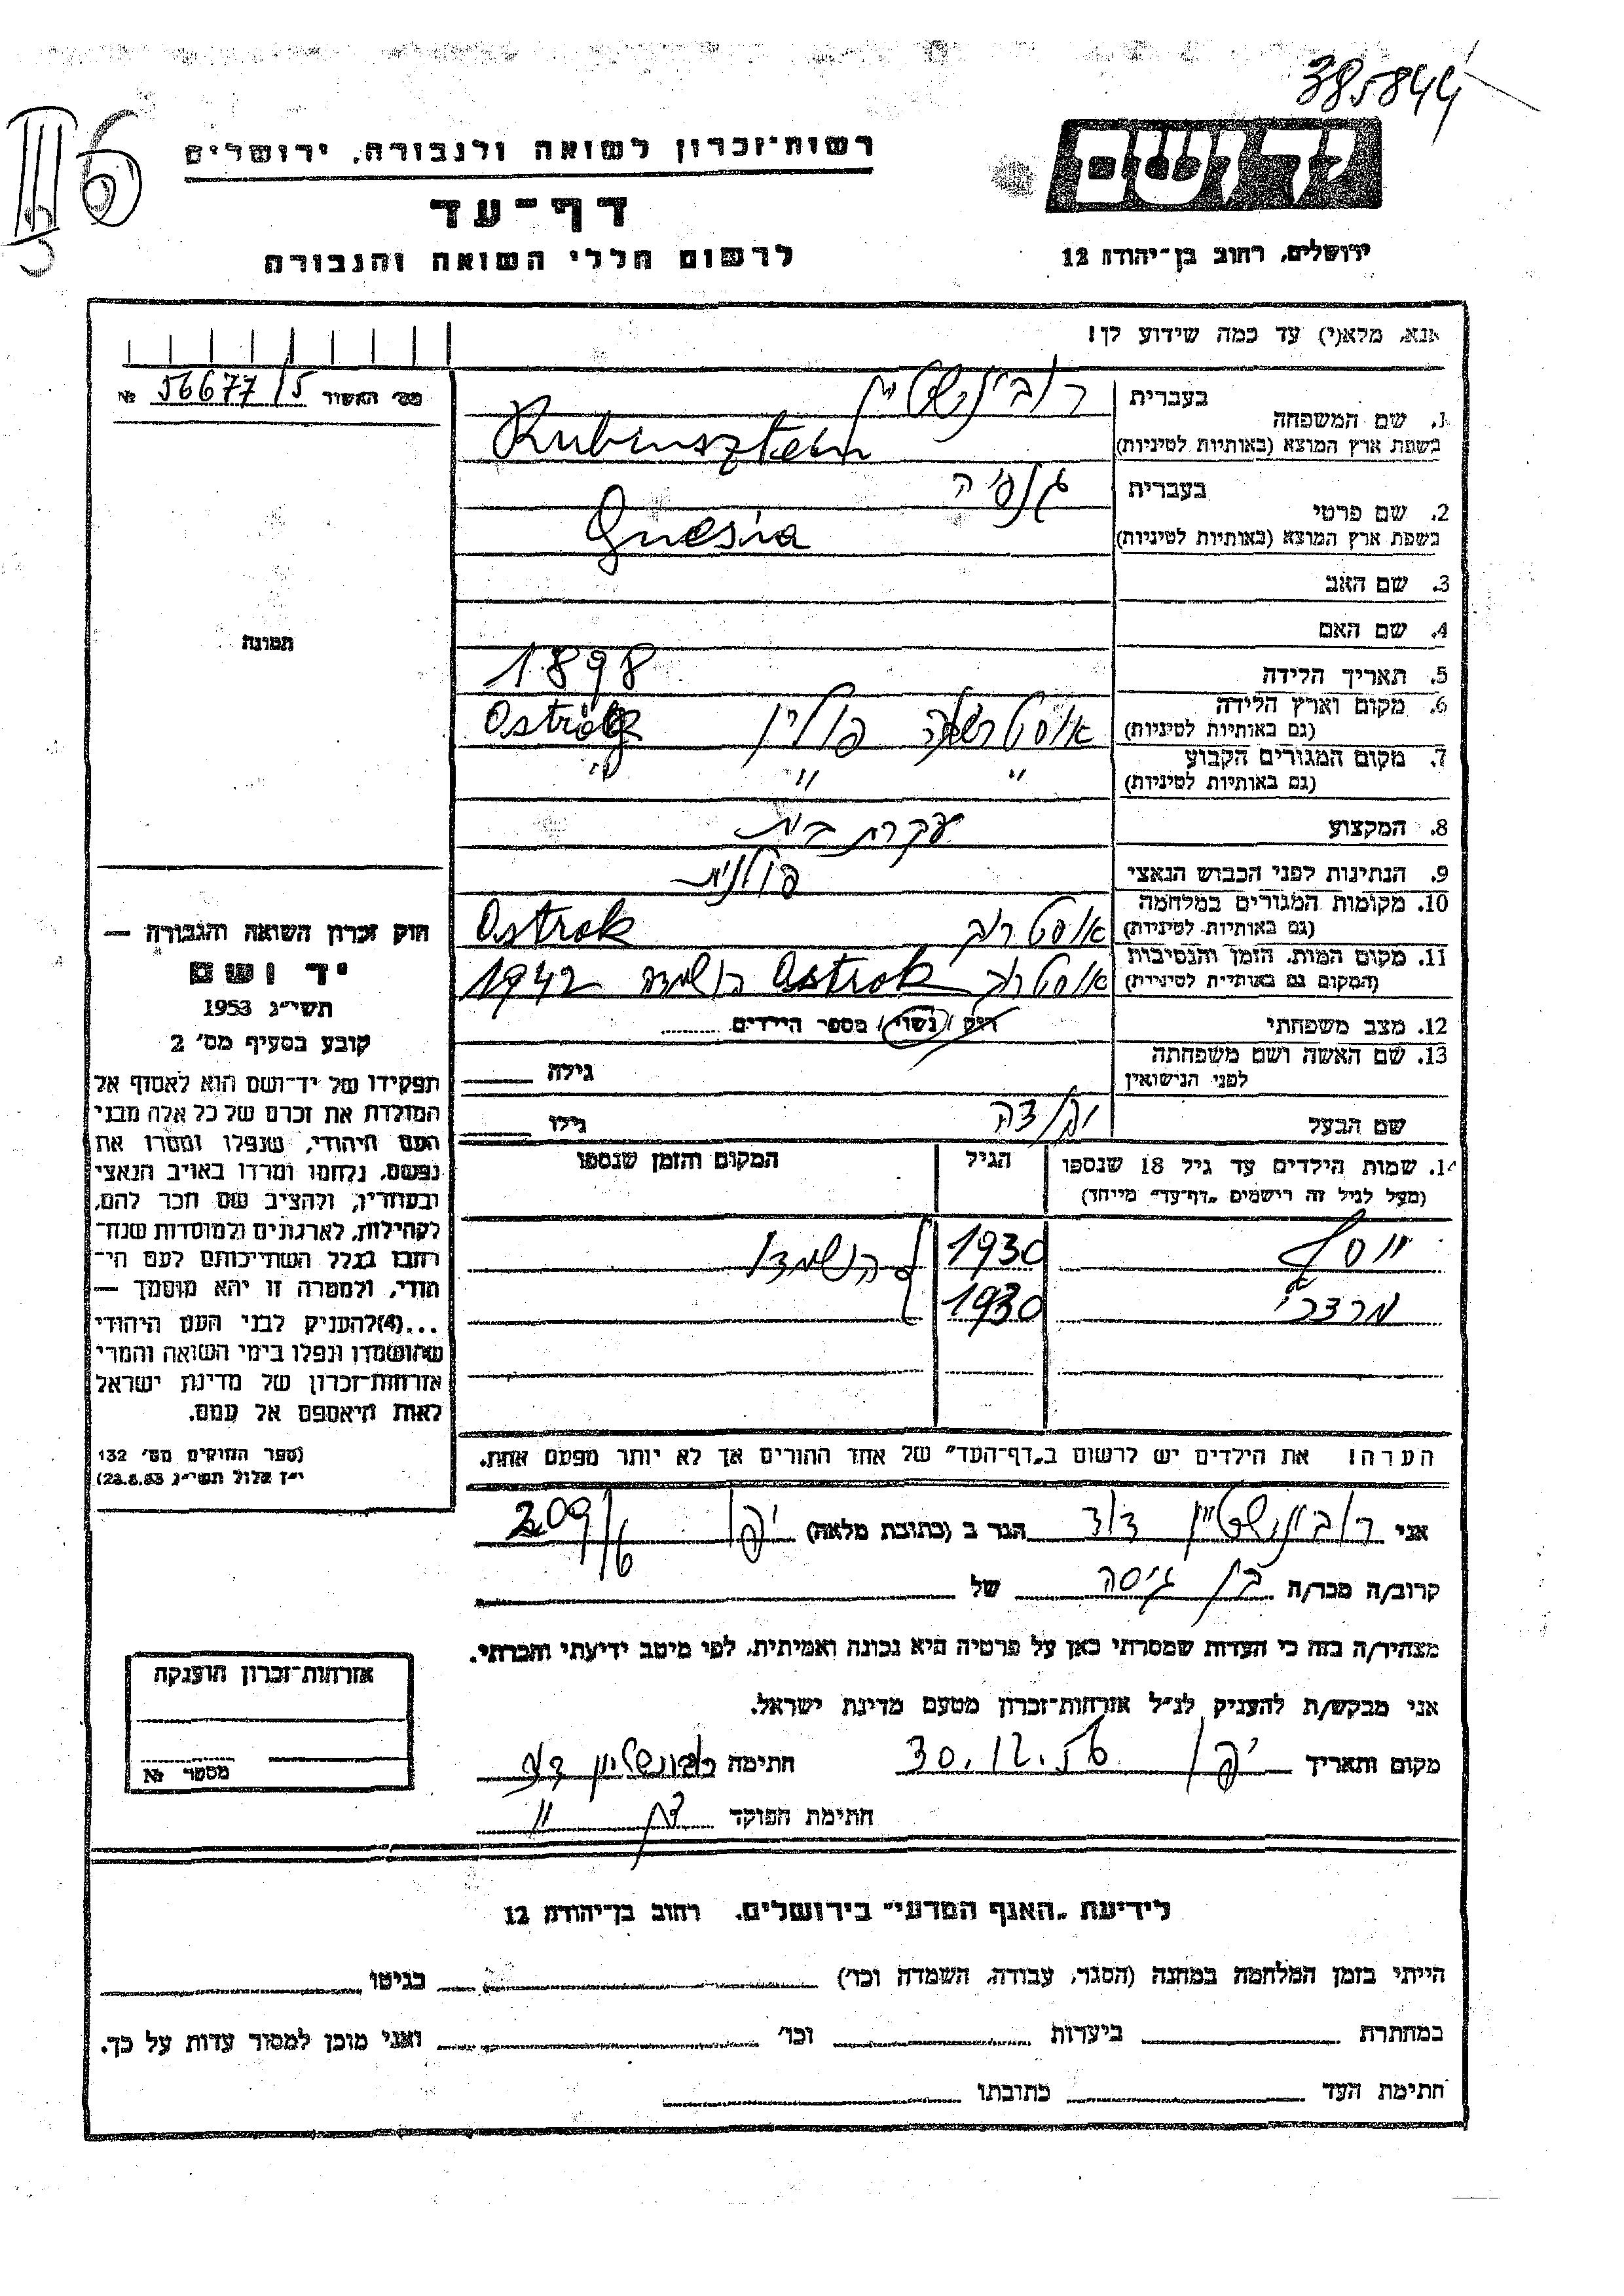 385844
רשות-זכרון לשואה ולגבורה, ירושלים
יד ושם
דף-עד
לרשום חללי השואה והגבורה
ירושלים, רחוב בן-יהודה 12
אנא, מלא(י) עד כמה שידוע לך!
מס' האשור 56677/5 №
1. שם המשפחה בעברית רובינשטיין
בשפת ארץ המוצא (באותיות לטיניות) Rubinsztein
2. שם פרטי בעברית
בשפת ארץ המוצא (באותיות לטיניות) Gnesia
3. שם האב
4. שם האם
תמונה
5. תאריך הלידה 1898
6. מקום וארץ הלידה (גם באותיות לטיניות) פולין Ostrog
7. מקום המגורים הקבוע (גם באותיות לטיניות) " " "
8. המקצוע עקרת בית
9. הנתינות לפני הכבוש הנאצי פולנית
10. מקומות המגורים במלחמה (גם באותיות לטיניות) אוסטרוג Ostrok
11. מקום המות, הזמן והנסיבות (המקום גם באותיית לטיניית) אוסטרוג Ostrok הושמדה 1942
12. מצב משפחתי רוק / נשוי / מספר הילדים
13. שם האשה ושם משפחתה לפני הנישואין גילה
שם הבעל גילו
14. שמות הילדים עד גיל 18 שנספו הגיל המקום והזמן שנספו
(מעל לגיל זה רישמים "דף-עד" מייחד)
יוסף 1930 הושמדו
מרדכי 1930
הערה! את הילדים יש לרשום ב"דף-העד" של אחד ההורים אך לא יותר מפעם אחת.
חוק זכרון השואה והגבורה —
יד ושם
תשי"ג 1953
קובע בסעיף מס' 2
תפקידו של יד-ושם הוא לאסוף אל
המולדת את זכרם של כל אלה מבני
העם היהודי, שנפלו ומסרו את
נפשם, נלחמו ומרדו באויב הנאצי
ובעוזריו, ולהציב שם וזכר להם,
לקהילות, לארגונים ולמוסדות שנח-
רבו בגלל השתייכותם לעם הי-
הודי, ולמטרה זו יהא מוסמך —
...(4)להעניק לבני העם היהודי
שהושמדו ונפלו בימי השואה והמרי
אזרחות-זכרון של מדינת ישראל
לאות היאספם אל עמם.
(ספר החוקים מס' 132
י"ז אלול תשי"ג 28.8.53)
אני רובינשטיין דוד הגר ב (כתובת מלאה) יפו
קרוב/ה מכר/ה בן גיסה של
מצהיר/ה בזה כי העדות שמסרתי כאן על פרטיה היא נכונה ואמיתית, לפי מיטב ידיעתי והכרתי.
אני מבקש/ת להעניק לנ"ל אזרחות-זכרון מטעם מדינת ישראל.
מקום ותאריך יפו 30.12.56 חתימה רובינשטיין דוד
חתימת הפוקד
אזרחות-זכרון הוענקה
מספר №
לידיעת "האגף המדעי" בירושלים, רחוב בן-יהודה 12
הייתי בזמן המלחמה במחנה (הסגר, עבודה, השמדה וכו') בגיטו
במחתרת ביערות וכו' ואני מוכן למסור עדות על כך.
חתימת העד כתובתו